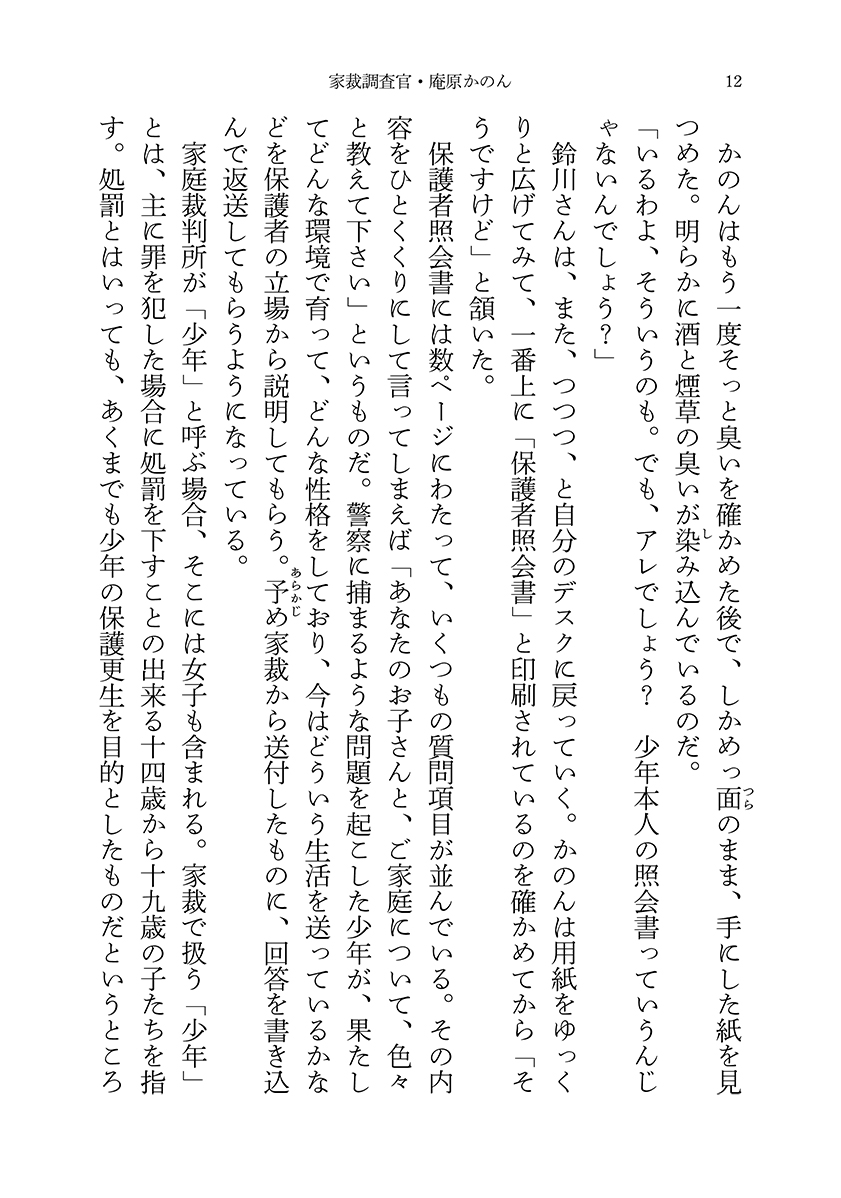 家裁調査官・庵原かのん
12
　かのんはもう一度そっと臭いを確かめた後で、しかめっ面のまま、手にした紙を見
つめた。明らかに酒と煙草の臭いが染み込んでいるのだ。
「いるわよ、そういうのも。でも、アレでしょう？　少年本人の照会書っていうんじ
ゃないんでしょう？」
　鈴川さんは、また、つつつ、と自分のデスクに戻っていく。かのんは用紙をゆっく
りと広げてみて、一番上に「保護者照会書」と印刷されているのを確かめてから「そ
うですけど」と頷いた。
　保護者照会書には数ページにわたって、いくつもの質問項目が並んでいる。その内
容をひとくくりにして言ってしまえば「あなたのお子さんと、ご家庭について、色々
と教えて下さい」というものだ。警察に捕まるような問題を起こした少年が、果たし
てどんな環境で育って、どんな性格をしており、今はどういう生活を送っているかな
どを保護者の立場から説明してもらう。予め家裁から送付したものに、回答を書き込
んで返送してもらうようになっている。
　家庭裁判所が「少年」と呼ぶ場合、そこには女子も含まれる。家裁で扱う「少年」
とは、主に罪を犯した場合に処罰を下すことの出来る十四歳から十九歳の子たちを指
す。処罰とはいっても、あくまでも少年の保護更生を目的としたものだというところ
つら
し
あらかじ